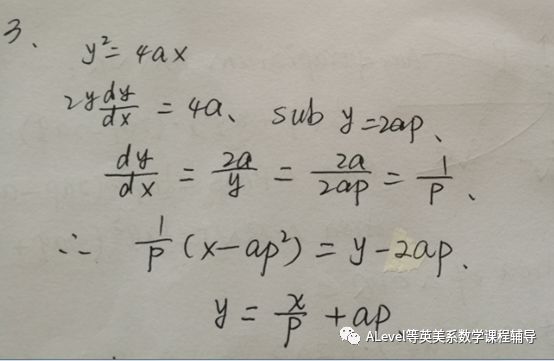 3、
y² = 4ax
2y dy/dx = 4a、 sub y=2ap、
dy/dx = 2a/y = 2a/2ap = 1/p、
∴ 1/p (x-ap²) = y-2ap.
y = x/p + ap
ALevel等英美系数学课程辅导